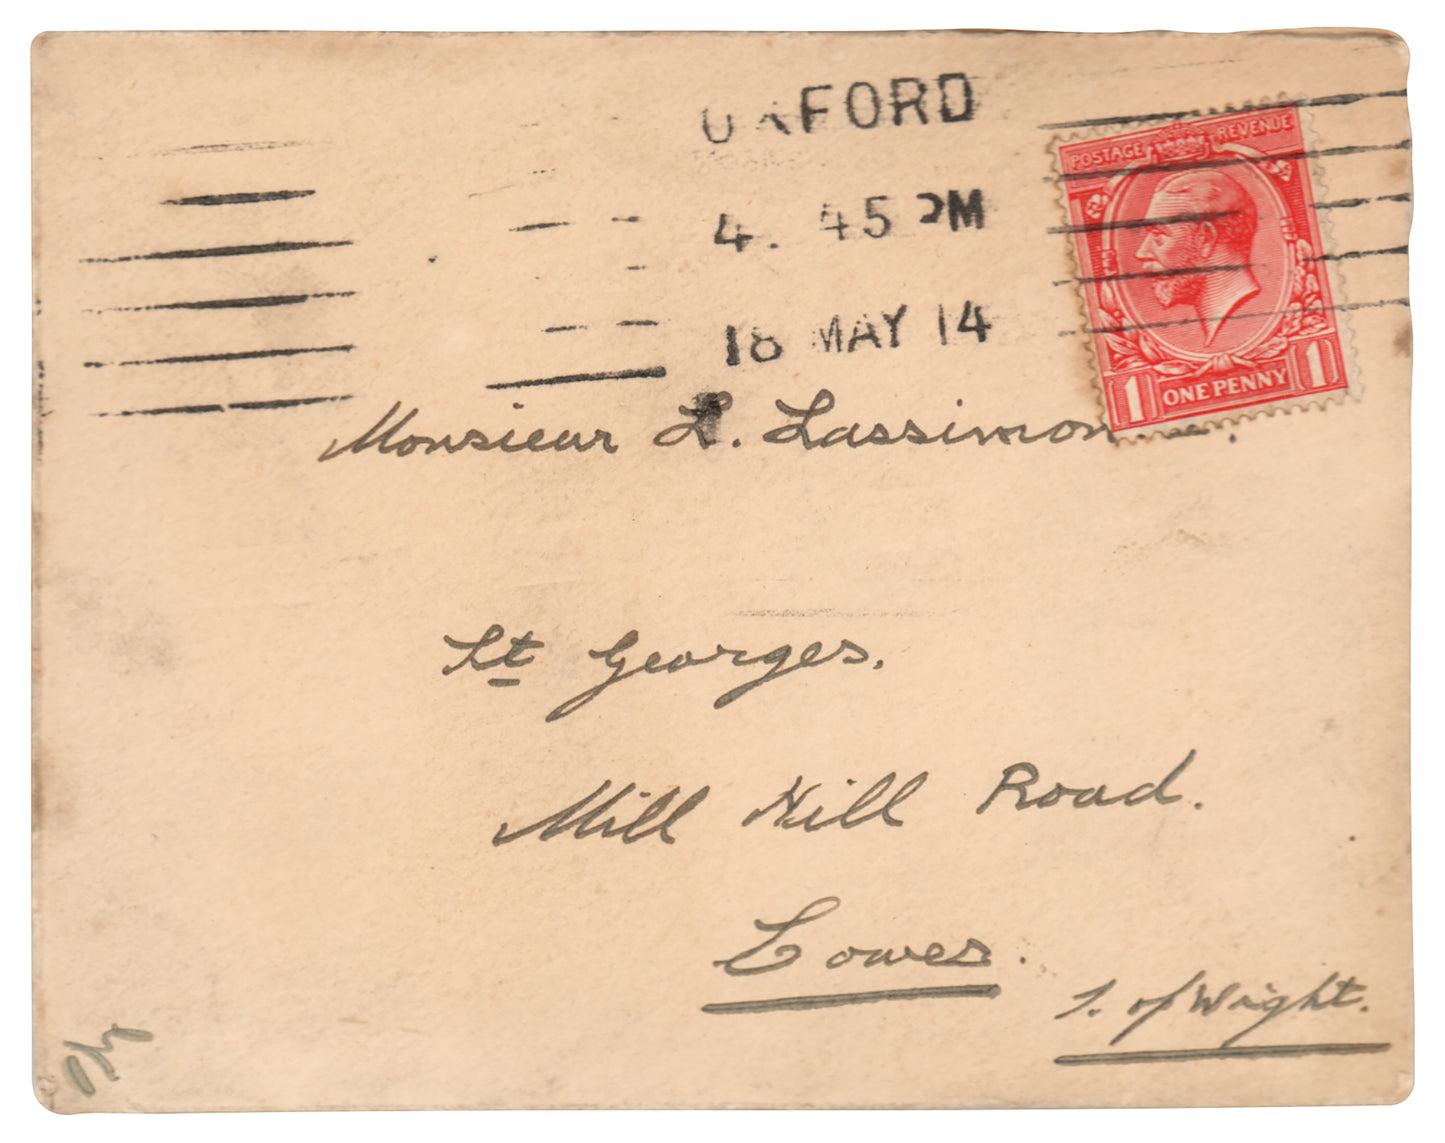 OXFORD
4. 45 PM
18 MAY 14
POSTAGE REVENUE
1 ONE PENNY 1
Monsieur L.
St Georges.
Mill Hill Road.
Cowes.
I. of Wight.